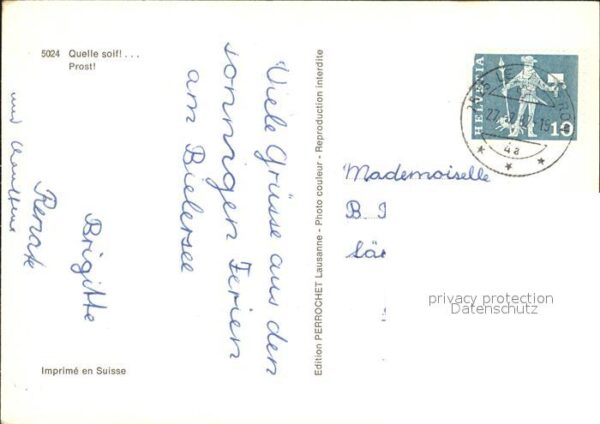 5024 Quelle soif!...
Prost!
Viele Grüsse aus den
sonnigen Ferien
am Bielersee
Brigitte
Renate
und
Imprimé en Suisse
Edition PERROCHET Lausanne - Photo couleur - Reproduction interdite
HELVETIA
10
4a
Mademoiselle
B.
privacy protection
Datenschutz